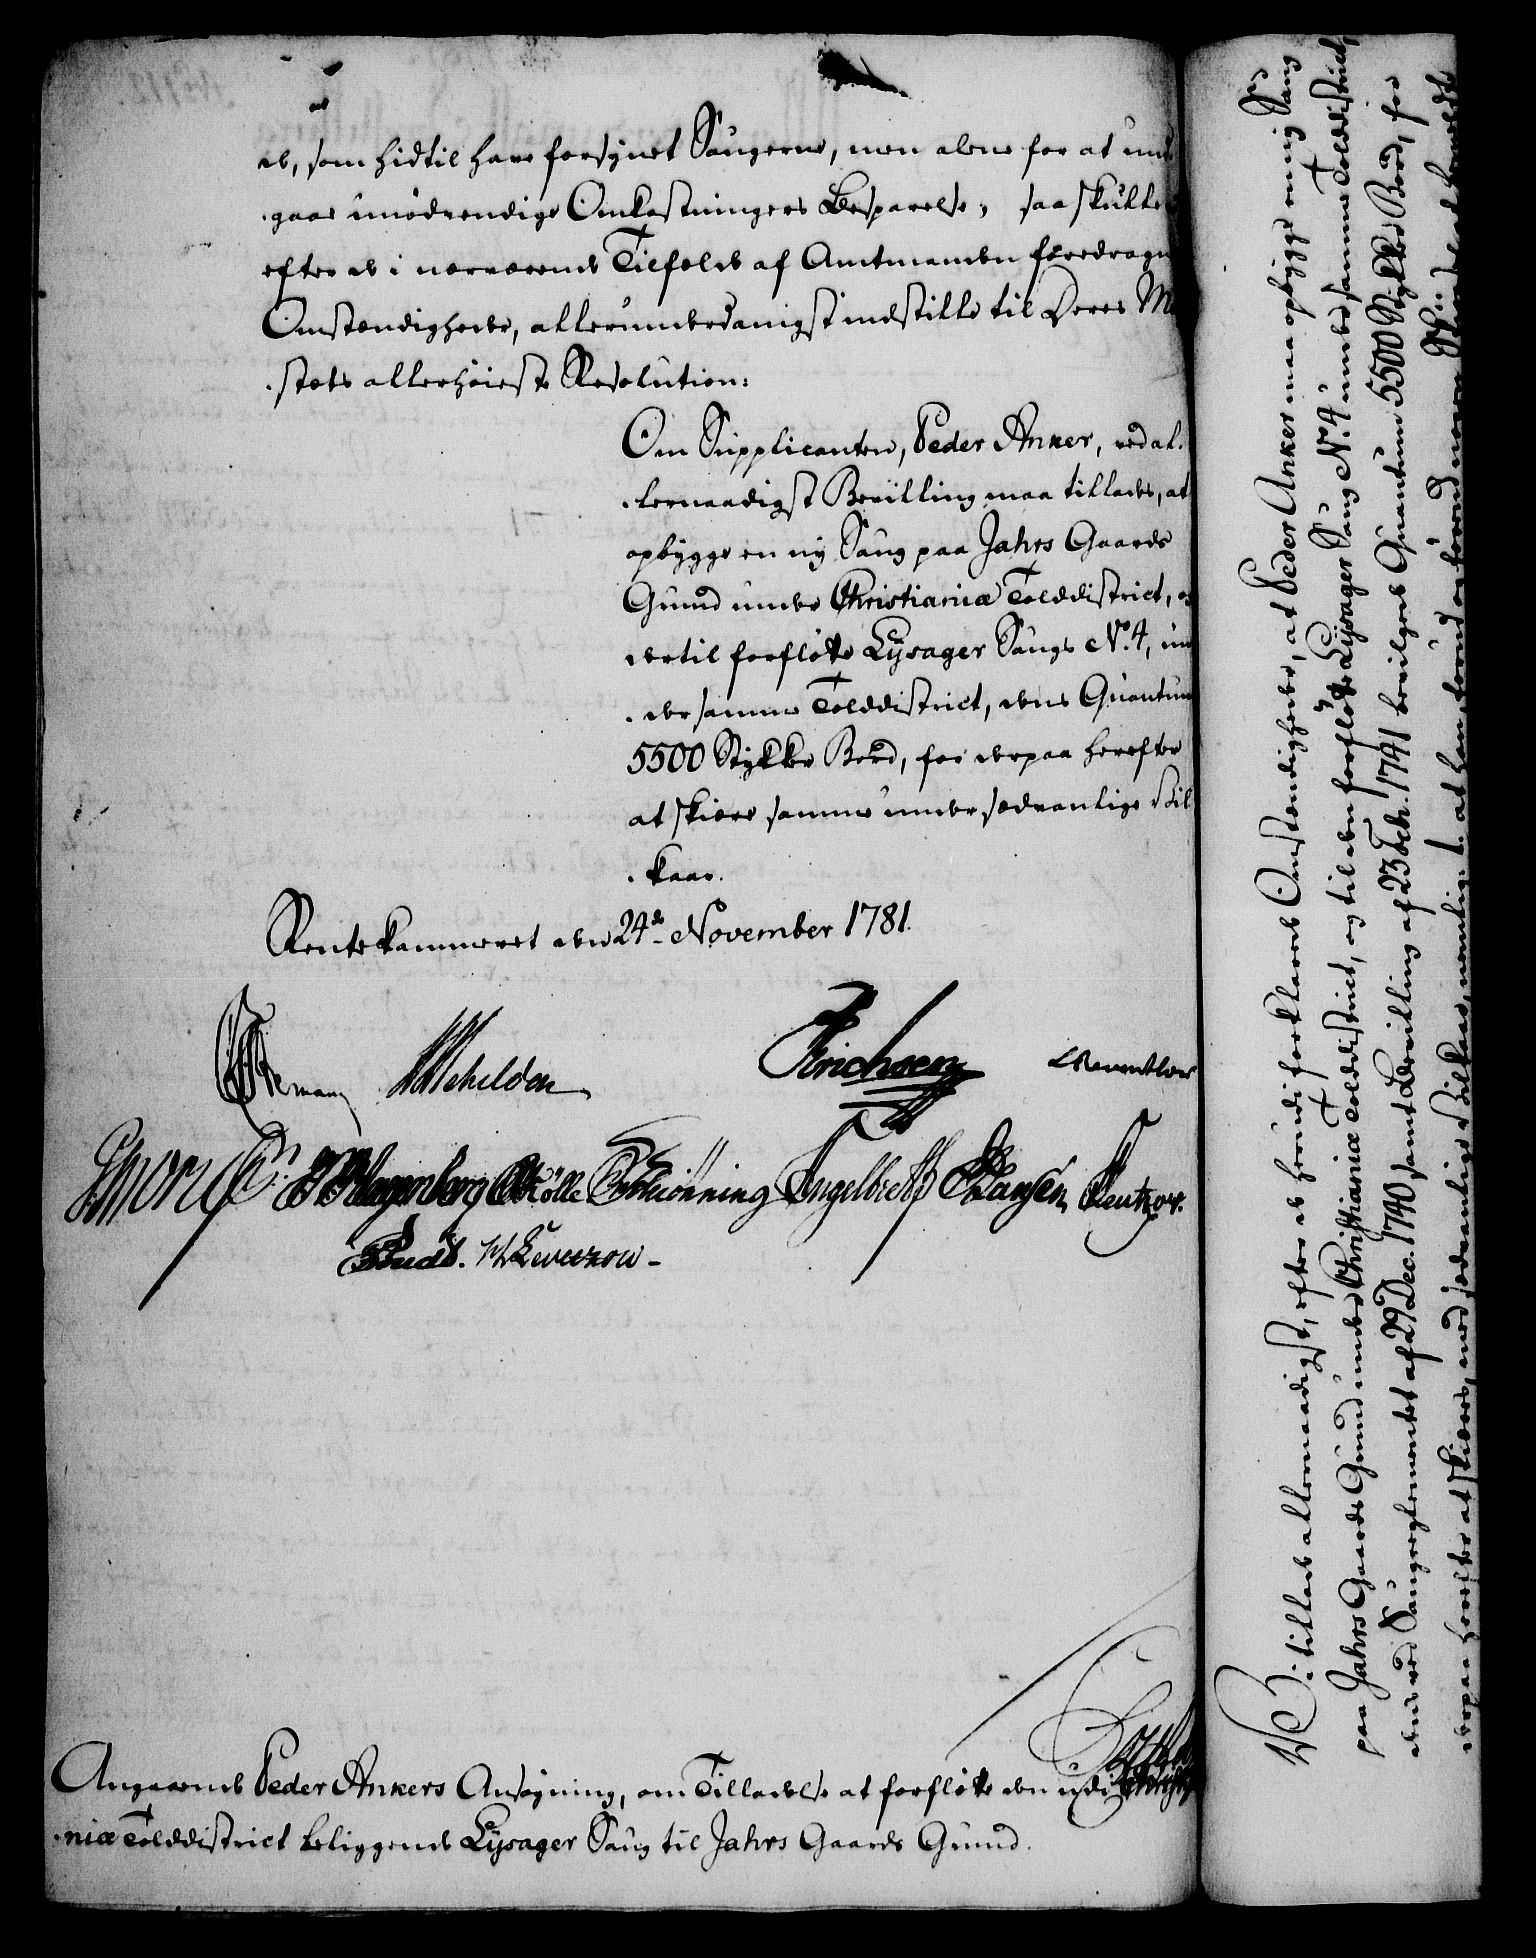 de, som hidtil have forsynet Saugerne, men alene for at und-
gaae unødvendige Omkastningers Besparelse; saa skulle
efter de i nærværende Tilfælde af Amtmanden foredragne
Omstændigheder, allerunderdanigst indstille til Deres Ma-
stæts allerhøieste Resolution:
Om Supplicanten, Peder Anker, ved al-
lernaadigst Bevilling maa tillades, at
opbygge en nÿ Saug paa Jahrs Gaards
Grund under Christianiæ Tolddistrict, og
dertil forfløtte Lÿsager Saugs No. 4, un-
der samme Tolddistrict, dens Quantum
5500 Stÿkker Bord, for derpaa herefter
at skiære samme under sædvanlige Vil-
kaar.
Rentekammeret den 24de November 1781.
Schilden Erichsen Reventlow
Müller Schiönning Engelbreth Hansen
Budtz. Levetzow
Angaaende Peder Ankers Ansøgning, om Tilladelse at forfløtte den udi Christia-
niæ Tolddistrict beliggende Lÿsager Saug til Jahrs Gaards Grund.
Vi tillade allernaadigst, efter de herudi forklarede Omstændigheder, at Peder Anker maa opbÿgge en nÿ Saug
paa Jahrs Gaards Grund under Christianiæ Tolddistrict, og til den forflÿtte Lÿsager Saug No. 4 under samme Tolddistrict,
dens ved Saugreglementet af 29 Dec. 1740, samt Bevilling af 23 Febr. 1741 bevilgede Quantum 5500 Stÿkker Bord, for
derpaa herefter at skiære, med sædvanlige Vilkaar, nemlig: 1. at han, forend